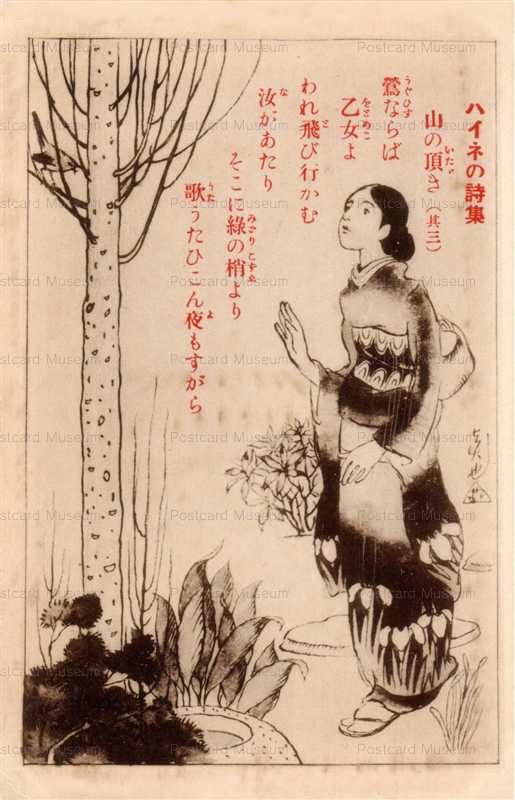 ハイネの詩集
山の頂き(其三)
鶯ならば
乙女よ
われ飛び行かむ
汝があたり
そこに綠の梢より
歌うたひこん夜もすがら
Postcard Museum